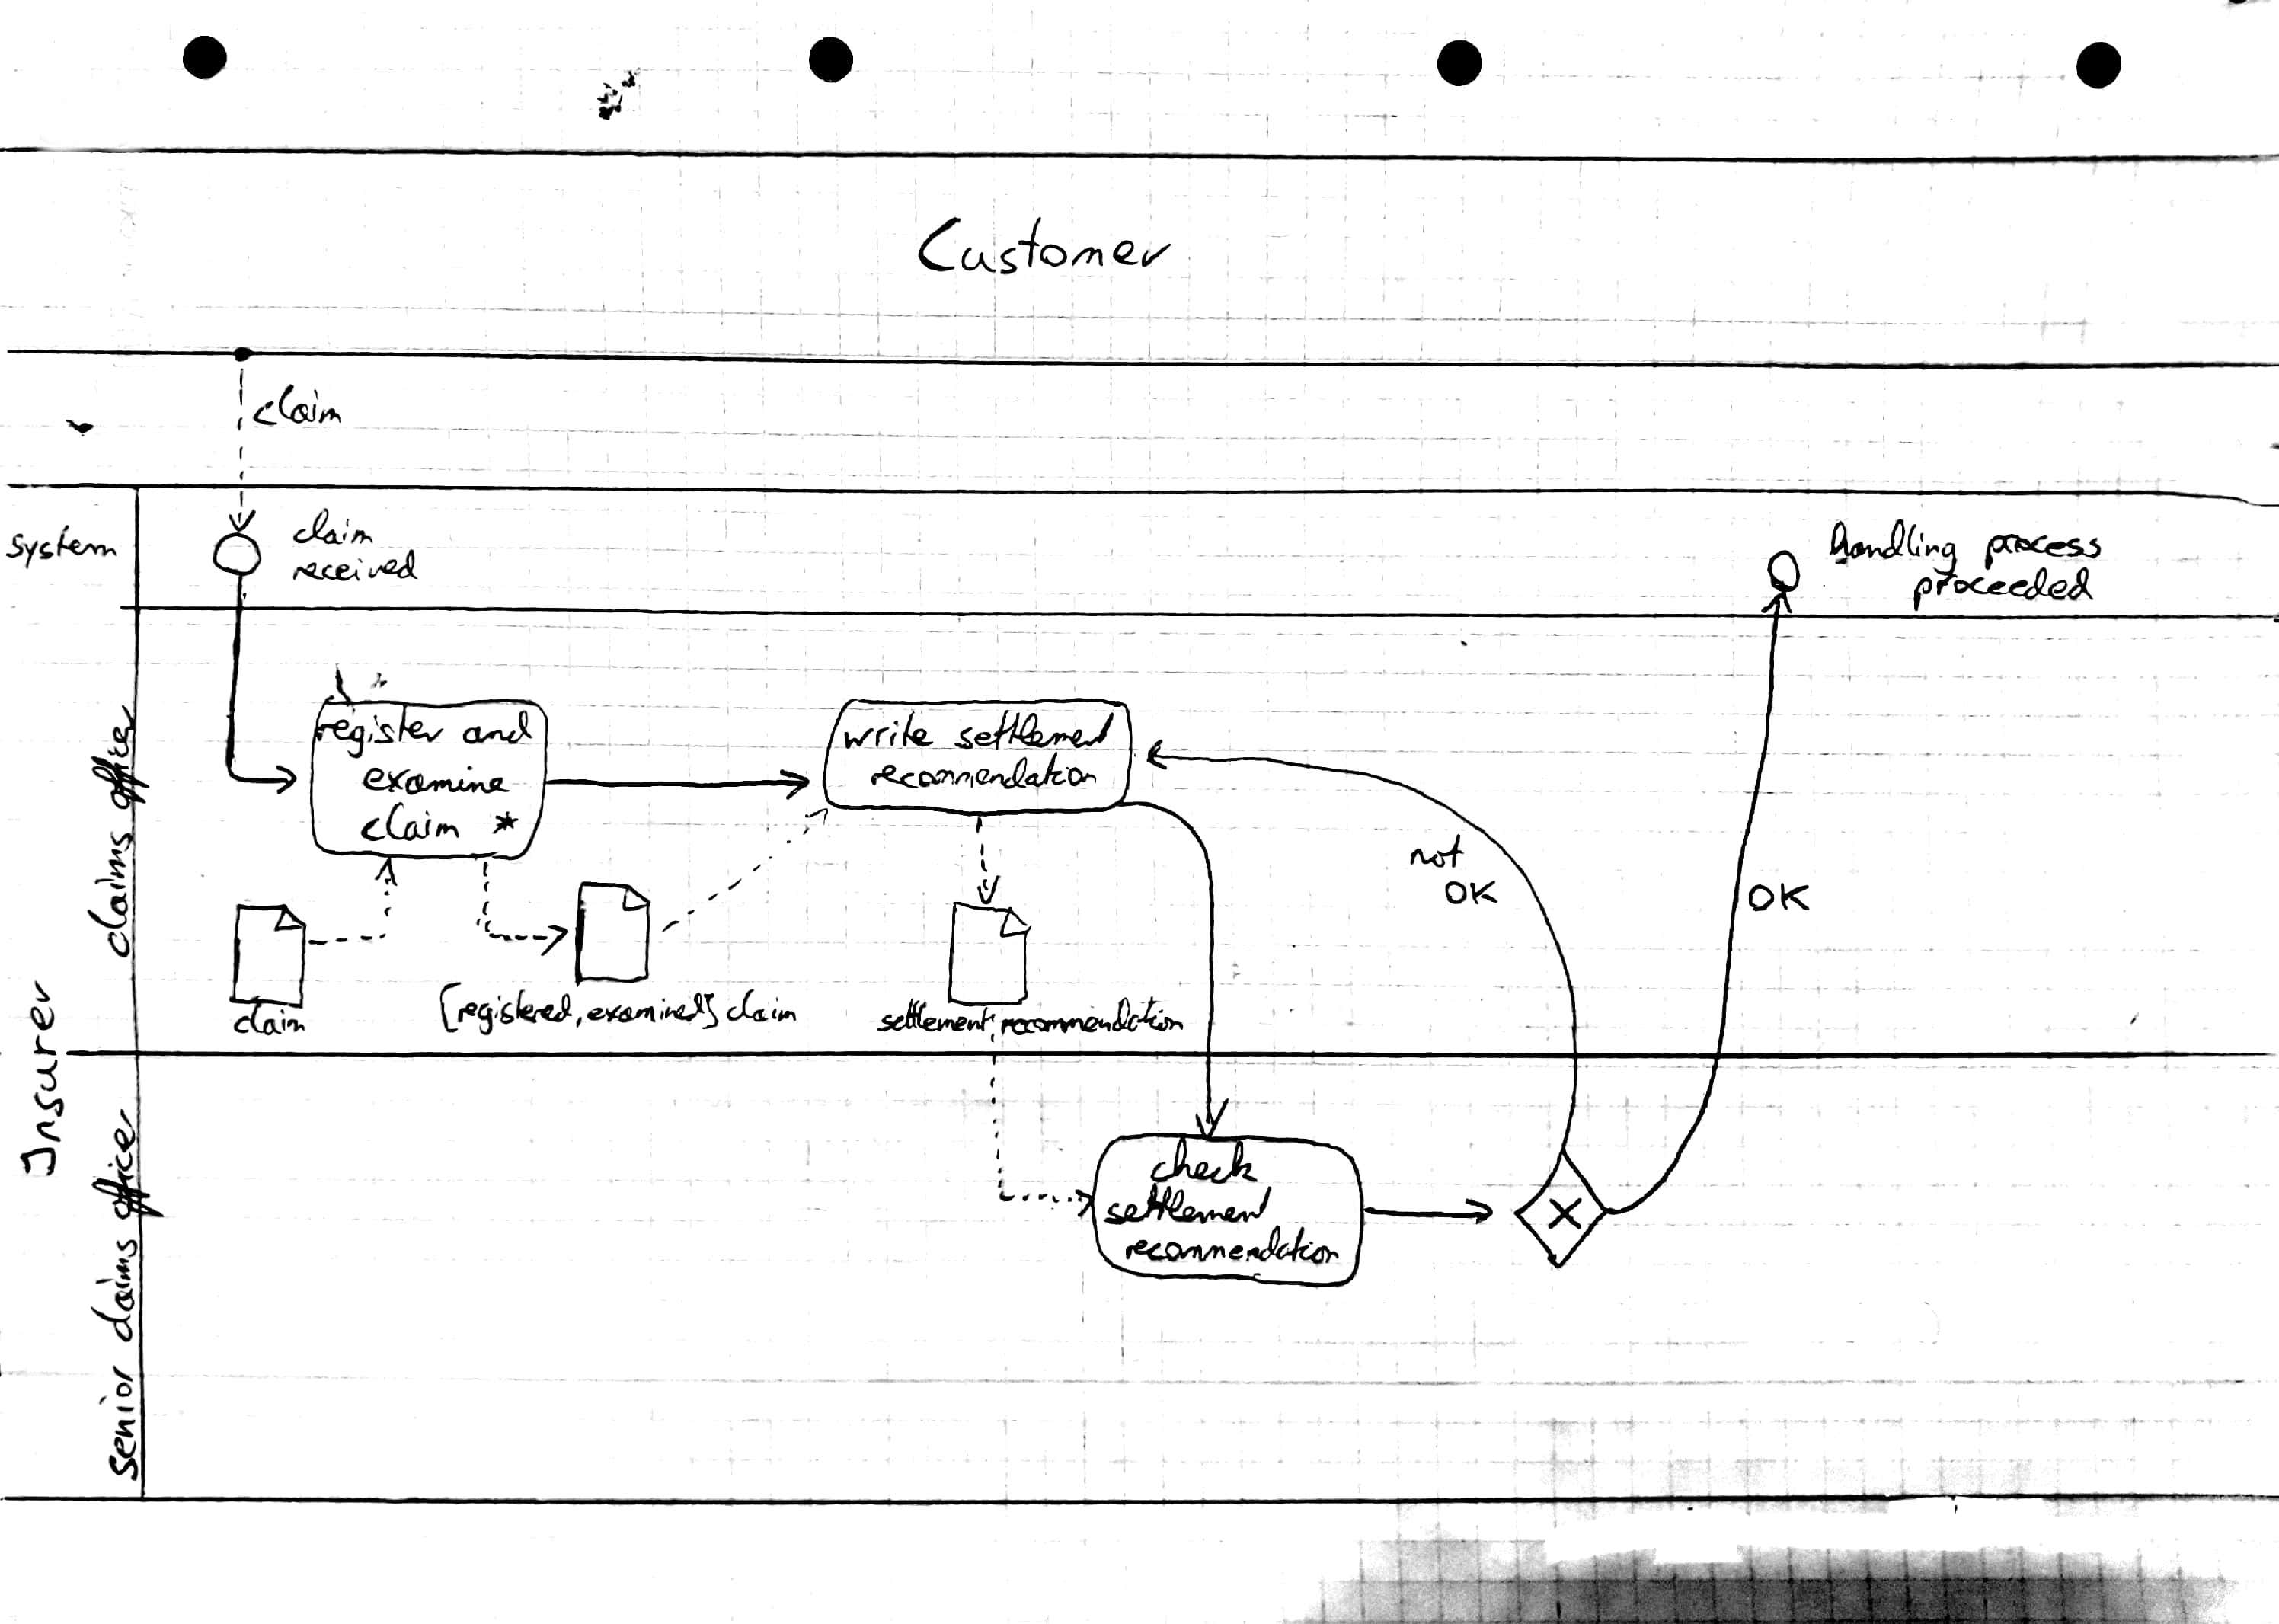 Customer
claim
system
claim
received
handling process
proceeded
Insurer
claims office
register and
examine
claim *
write settlement
recommendation
not
OK
OK
claim
[registered, examined] claim
settlement recommendation
senior claims office
check
settlement
recommendation
X